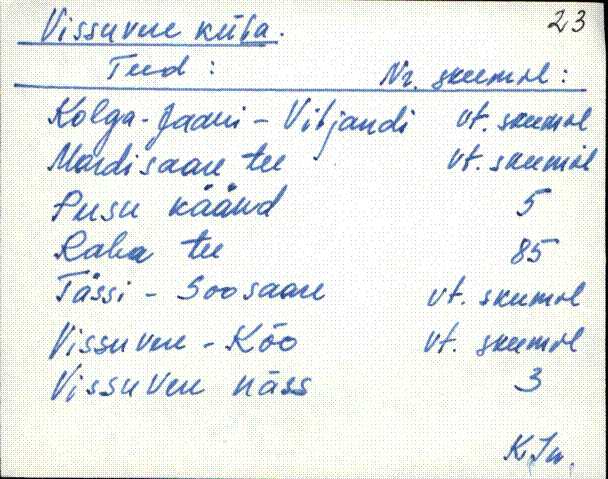 23
Vissuvere küla.
Teed: Nr. skeemil:
Kolga-Jaani - Viljandi vt. skeemil
Mardisaare tee vt. skeemil
Pusu käänd 5
Raba tee 85
Tässi - Soosaare vt. skeemil
Vissuvere - Kõo vt. skeemil
Vissuvere näss 3